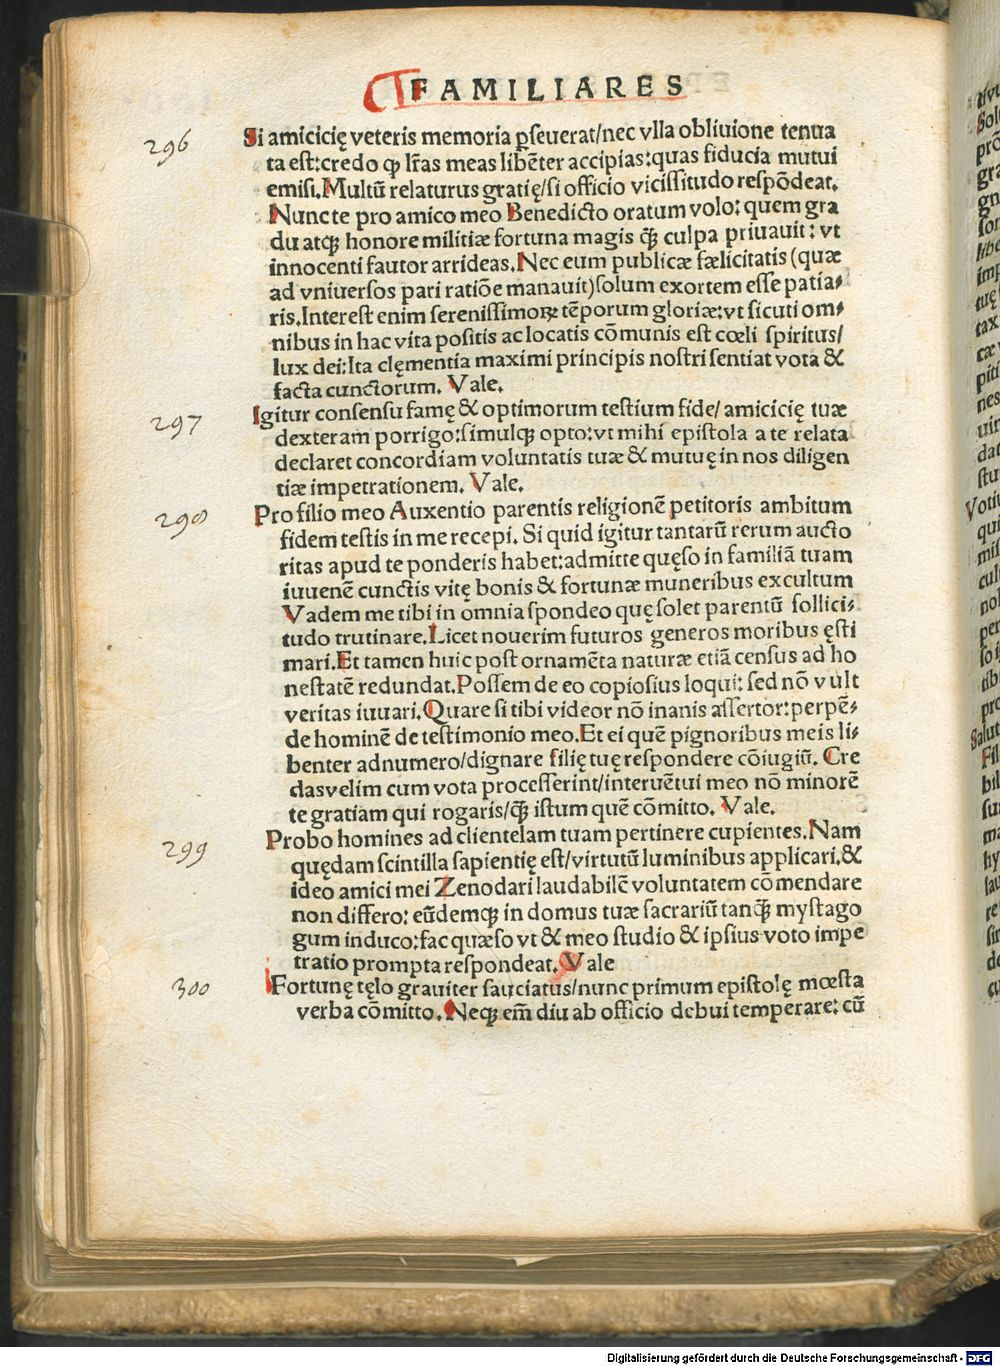 FAMILIARES
296
Si amicicię veteris memoria ꝑseuerat/nec vlla obliuione tenua
ta est:credo ꝙ lr̃as meas libẽter accipias:quas fiducia mutui
emisi.Multũ relaturus gratię/si officio vicissitudo respõdeat.
Nunc te pro amico meo Benedicto oratum volo: quem gra
du atqꝫ honore militiæ fortuna magis q̃ꝫ culpa priuauit: vt
innocenti fautor arrideas.Nec eum publicæ fælicitatis (quæ
ad vniuersos pari ratiõe manauit)solum exortem esse patia⸗
ris.Interest enim serenissimoꝝ tẽporum gloriæ:vt sicuti om⸗
nibus in hac vita positis ac locatis cõmunis est cœli spiritus/
lux dei:Ita clęmentia maximi principis nostri sentiat vota &
facta cunctorum. Vale.
297
Igitur consensu famę & optimorum testium fide/ amicicię tuæ
dexteram porrigo:simulqꝫ opto:vt mihi epistola a te relata
declaret concordiam voluntatis tuæ & mutuę in nos diligen
tiæ impetrationem. Vale.
298
Pro filio meo Auxentio parentis religionẽ petitoris ambitum
fidem testis in me recepi. Si quid igitur tantarũ rerum aucto
ritas apud te ponderis habet:admitte quęso in familiã tuam
iuuenẽ cunctis vitę bonis & fortunæ muneribus excultum
Vadem me tibi in omnia spondeo quę solet parentũ sollici⸗
tudo trutinare.Licet nouerim futuros generos moribus ęsti
mari.Et tamen huic post ornamẽta naturæ etiã census ad ho
nestatẽ redundat.Possem de eo copiosius loqui: sed nõ vult
veritas iuuari.Quare si tibi videor nõ inanis assertor:perpẽ⸗
de hominẽ de testimonio meo.Et ei quẽ pignoribus meis li⸗
benter adnumero/dignare filię tuę respondere cõiugiũ. Cre
das velim cum vota processerint/interuẽtui meo nõ minorẽ
te gratiam qui rogaris/q̃ꝫ istum quẽ cõmitto. Vale.
299
Probo homines ad clientelam tuam pertinere cupientes.Nam
quędam scintilla sapientię est/virtutũ luminibus applicari.&
ideo amici mei Zenodari laudabilẽ voluntatem cõmendare
non differo: eũdemqꝫ in domus tuæ sacrariũ tanq̃ꝫ mystago
gum induco:fac quæso vt & meo studio & ipsius voto impe
tratio prompta respondeat. Vale
300
Fortunę tęlo grauiter sauciatus/nunc primum epistolę mœsta
verba cõmitto.Neqꝫ em̃ diu ab officio debui temperare: cũ
Digitalisierung gefördert durch die Deutsche Forschungsgemeinschaft - DFG